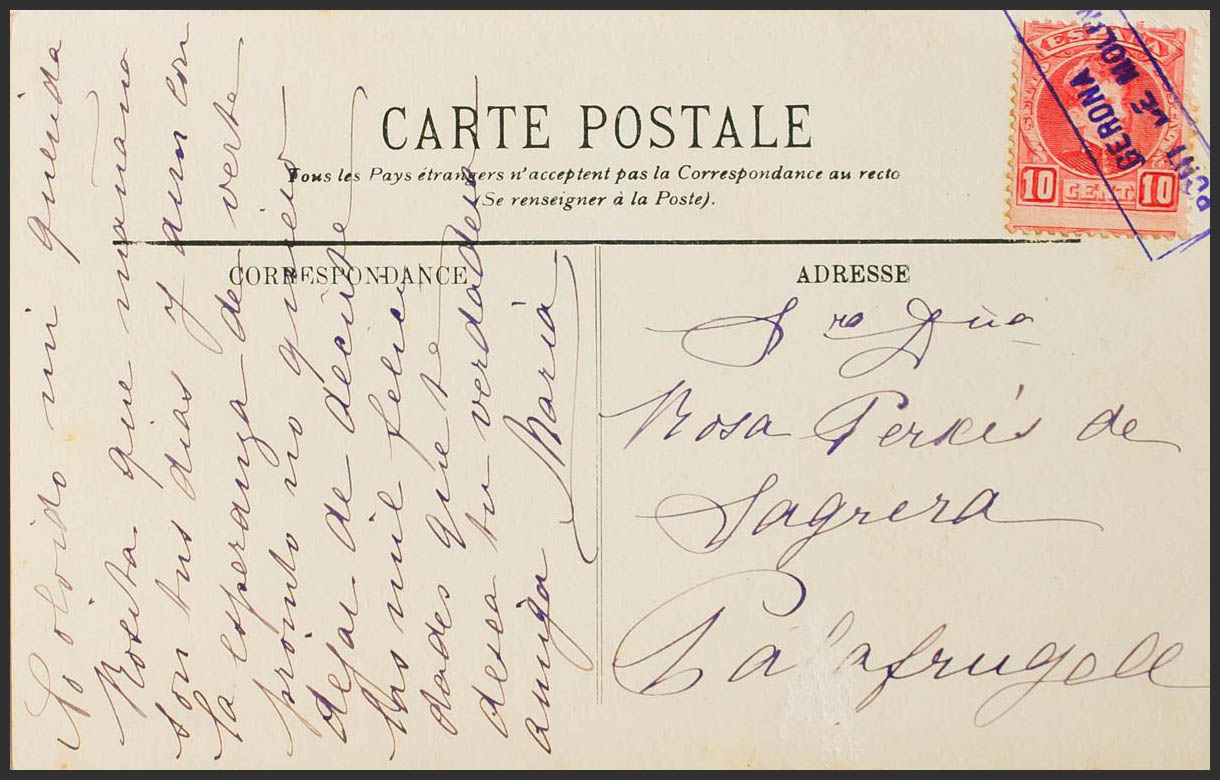 CARTE POSTALE
Tous les Pays étrangers n'acceptent pas la Correspondance au recto
(Se renseigner à la Poste).
CORRESPONDANCE
ADRESSE
ESPAÑA
10 CENT 10
GERONA
PONT DE MOLINS
olvido mi querida
Rosita que mañana
son tus dias y aun con
la esperanza de verte
pronto no quiero
dejar de decirte
las mil felici
dades que te
desea tu verdadera
amiga Maria
Sra Dña
Rosa Perxés de
Sagrera
Palafrugell